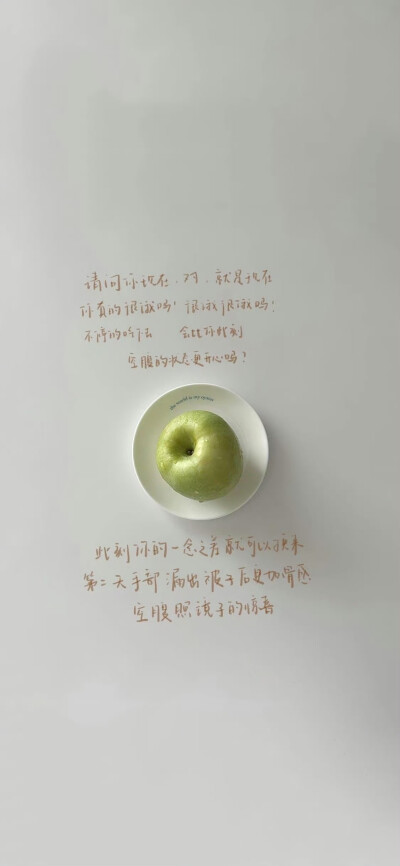 请问你现在,对,就是现在
你真的很饿吗!很饿很饿吗!
不停的吃下去 会比你此刻
空腹的状态更开心吗?
the world is my oyster
此刻你的一念之差就可以换来
第二天手部漏出被子后更加骨感
空腹照镜子的惊喜